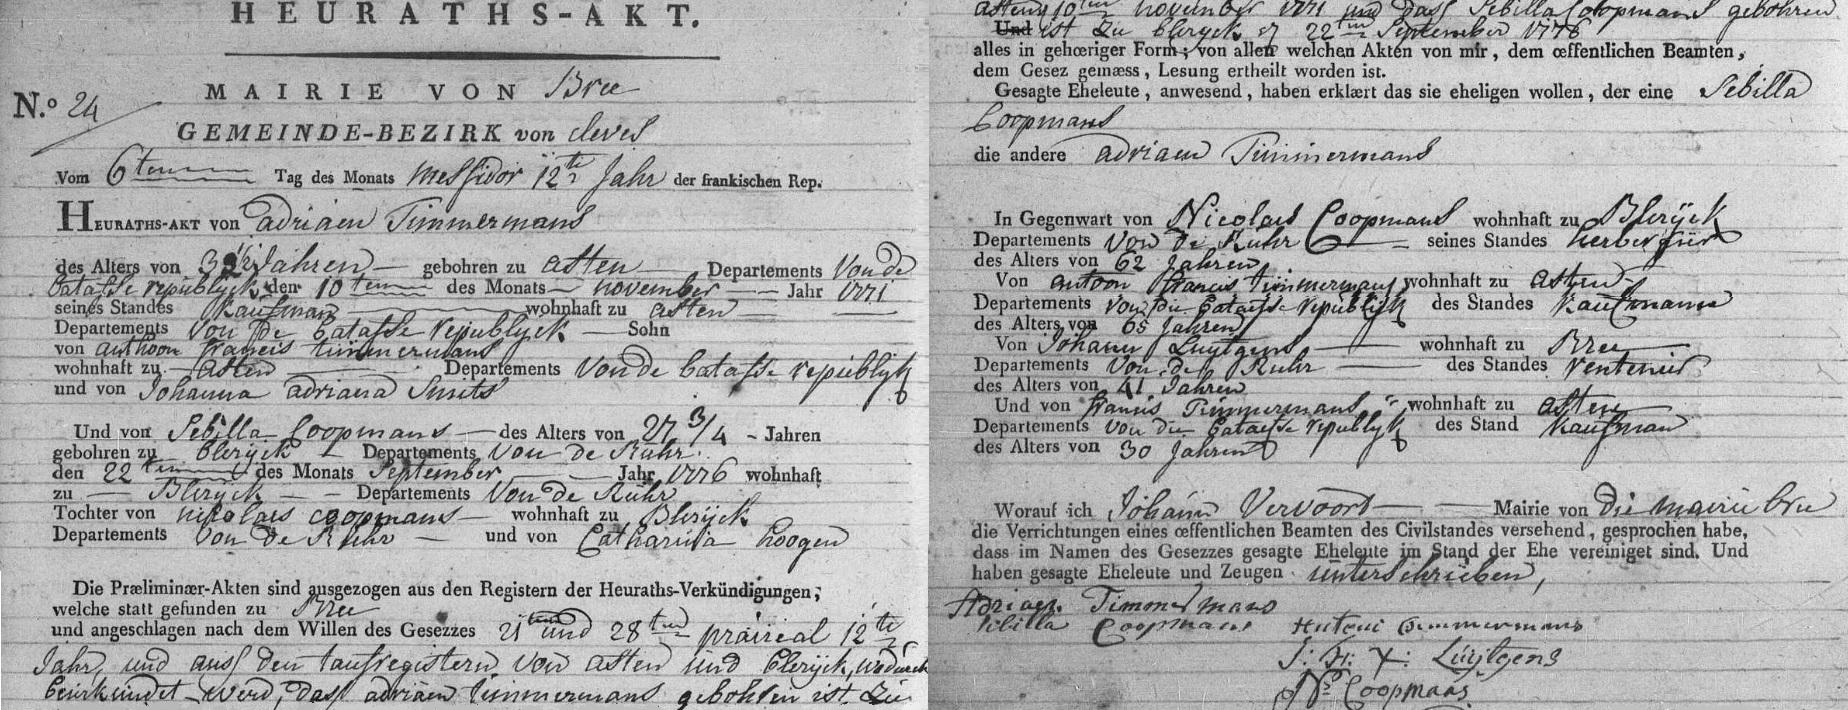 HEURATHS-AKT.
MAIRIE VON Bree
N.o 24
GEMEINDE-BEZIRK von cleves
Vom 6ten Tag des Monats messidor 12te Jahr der frankischen Rep.
HEURATHS-AKT von adriaen Timmermans
des Alters von 32 1/2 Jahren gebohren zu asten Departements Von de
batafse republyck den 10ten des Monats november Jahr 1771
seines Standes Kaufman wohnhaft zu asten
Departements Von de batafse republyck Sohn
von anthoon francis timmermans
wohnhaft zu asten Departements Von de batafse republyk
und von Johanna adriana Smits
Und von Sebilla Coopmans des Alters von 27 3/4 Jahren
gebohren zu bleryck Departements Von de Ruhr
den 22ten des Monats September Jahr 1776 wohnhaft
zu Bleryck Departements Von de Ruhr
Tochter von nikolaes coopmans wohnhaft zu Bleryck
Departements Von de Ruhr und von Catharina hoogen
Die Præliminær-Akten sind ausgezogen aus den Registern der Heuraths-Verkündigungen,
welche statt gefunden zu Bree
und angeschlagen nach dem Willen des Gesezzes 21ten und 28ten prairial 12te
Jahr, und aus den taufregistern von asten und bleryck, wodurch
beurkundet werd, dass adriaen timmermans gebohren ist zu
asten 10ten november 1771 und dass Sebilla Coopmans gebohren
Und ist zu bleryck 22ten September 1776
alles in gehœriger Form; von allen welchen Akten von mir, dem œffentlichen Beamten,
dem Gesez gemæss, Lesung ertheilt worden ist.
Gesagte Eheleute, anwesend, haben erklært das sie eheligen wollen, der eine Sebilla
Coopmans
die andere adriaen Timmermans
In Gegenwart von Nicolaes Coopmans wohnhaft zu Bleryck
Departements Von de Ruhr seines Standes
des Alters von 62 Jahren
Von antoon francis timmermans wohnhaft zu asten
Departements von die batafse republyk des Standes Kaufmann
des Alters von 65 Jahren
Von Johann Luytgens wohnhaft zu Bree
Departements Von de Ruhr des Standes rentenier
des Alters von 41 Jahren
Und von francis Timmermans wohnhaft zu asten
Departements von die batafse republyk des Stand Kaufman
des Alters von 30 Jahren
Worauf ich Johann Vervoort Mairie von die mairie bree
die Verrichtungen eines œffentlichen Beamten des Civilstandes versehend, gesprochen habe,
dass im Namen des Gesezzes gesagte Eheleute im Stand der Ehe vereiniget sind. Und
haben gesagte Eheleute und Zeugen unterschrieben,
Adriaen Timmermans
sibilla Coopmans Antoni Timmermans
J: H: Luijtgens
Ns Coopmans